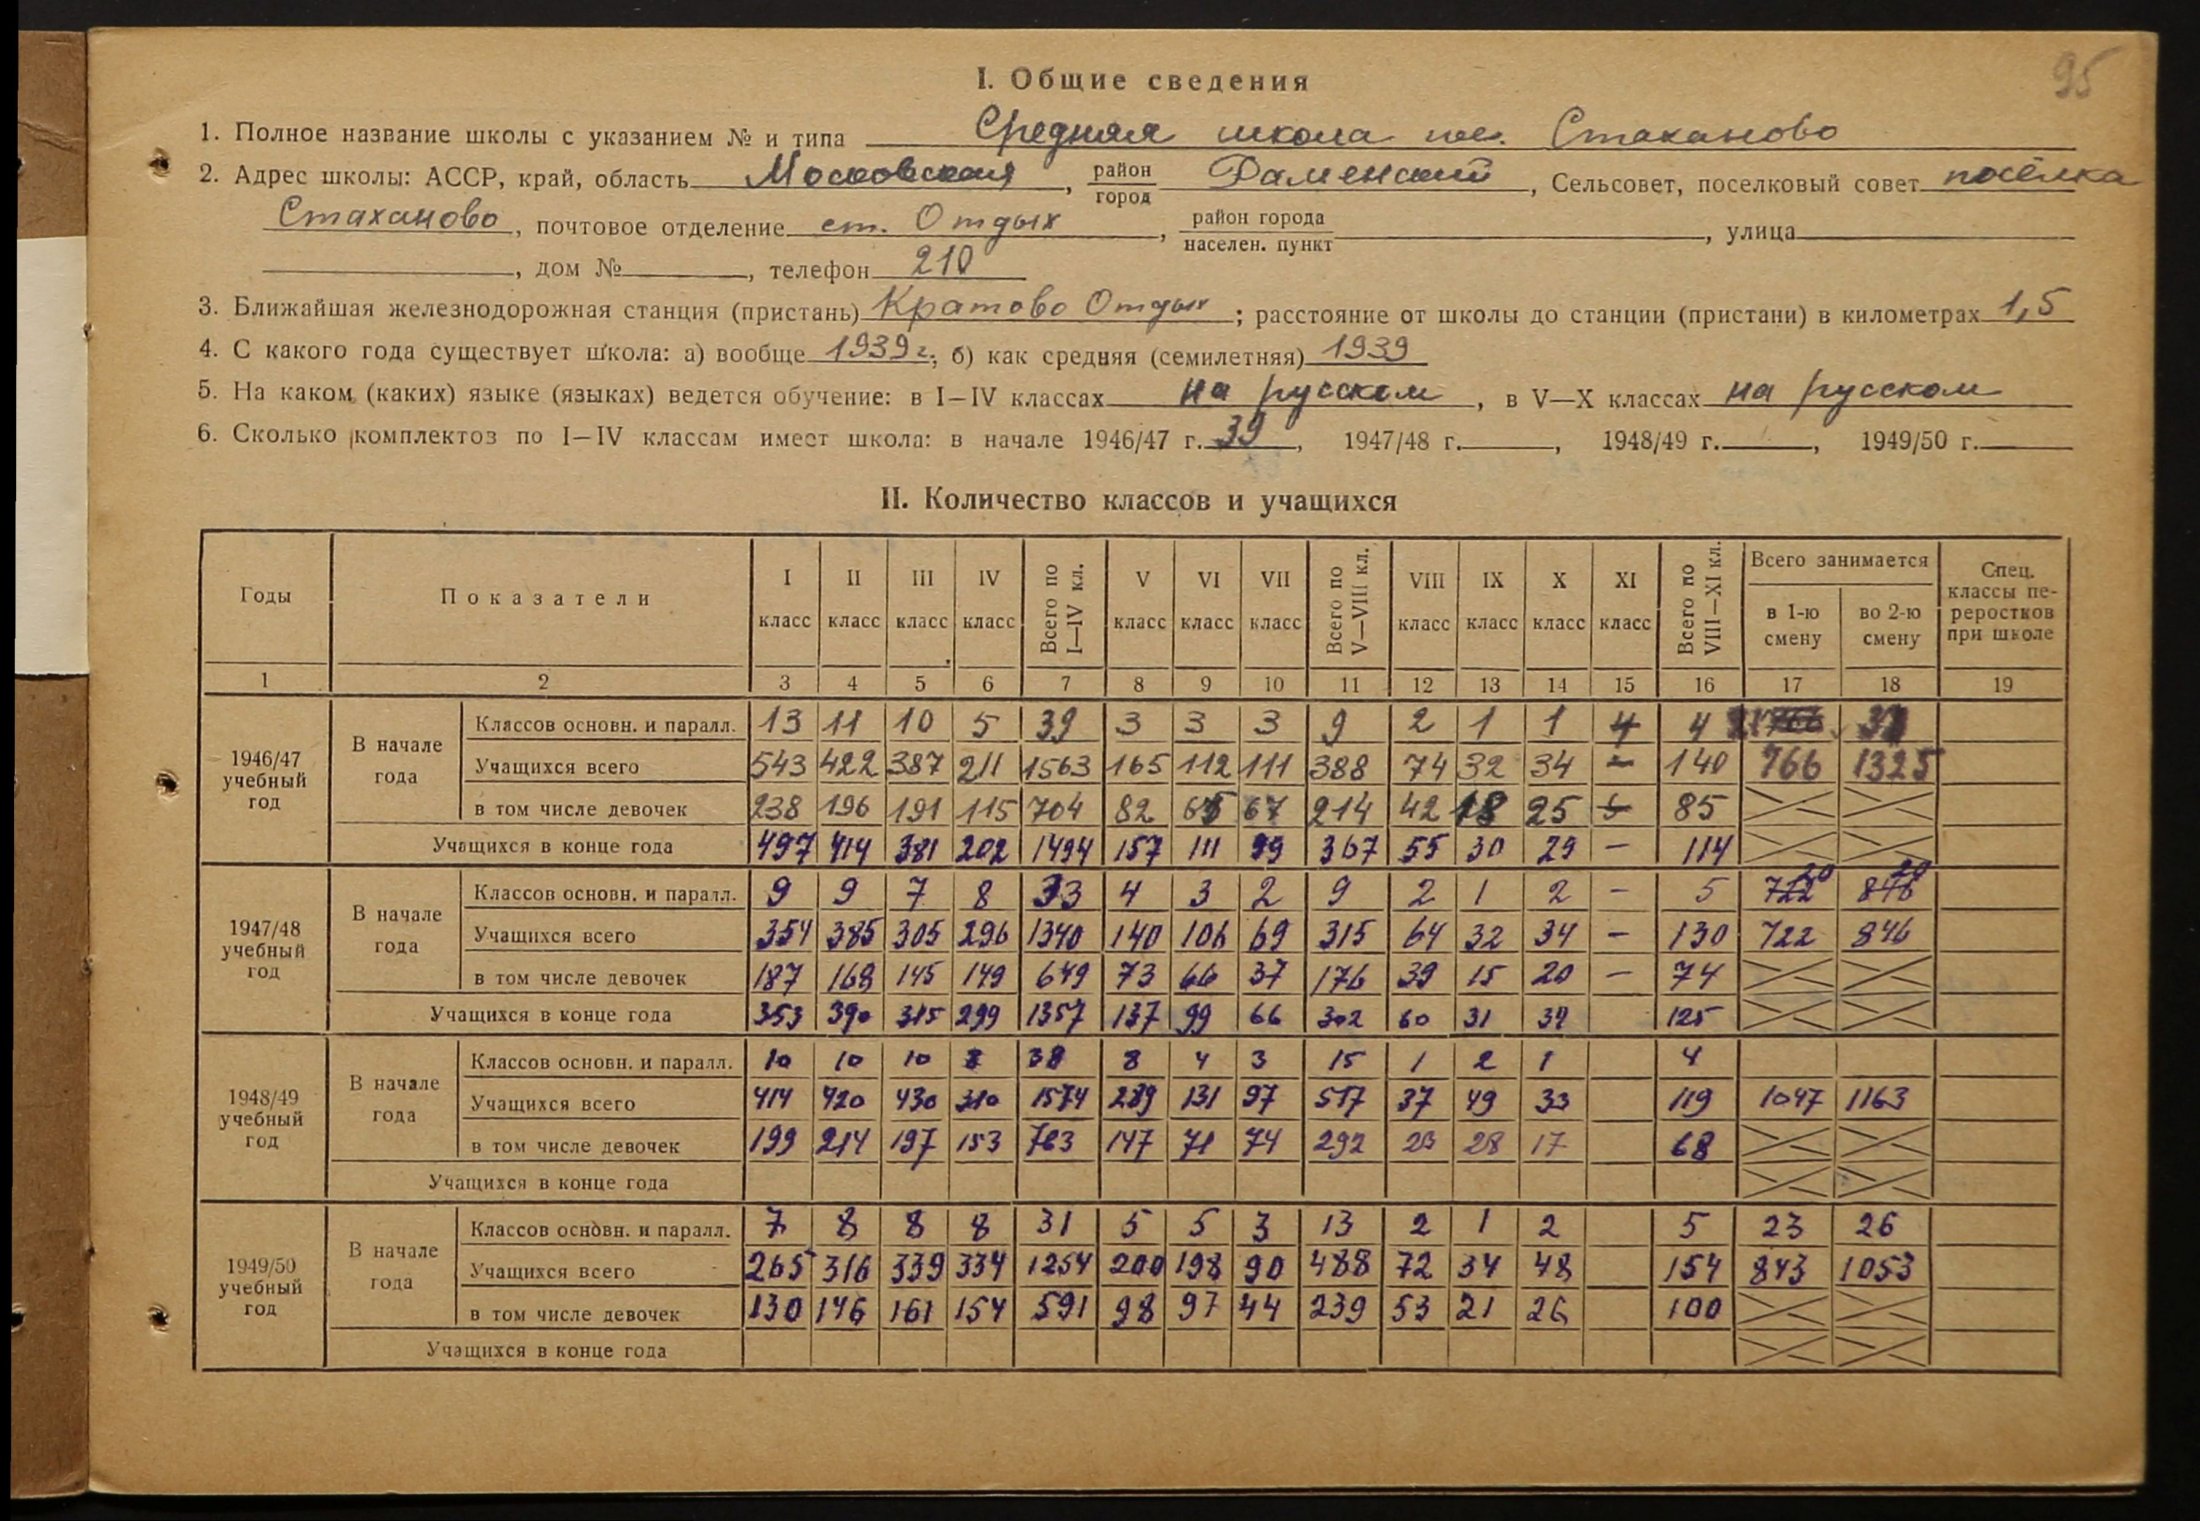 95
I. Общие сведения
1. Полное название школы с указанием № и типа Средняя школа пос. Стаханово
2. Адрес школы: АССР, край, область Московская, район город Раменский, Сельсовет, поселковый совет посёлка
Стаханово, почтовое отделение ст. Отдых, район города населен. пункт , улица
, дом № , телефон 210
3. Ближайшая железнодорожная станция (пристань) Кратово Отдых; расстояние от школы до станции (пристани) в километрах 1,5
4. С какого года существует школа: а) вообще 1939 г., б) как средняя (семилетняя) 1939
5. На каком (каких) языке (языках) ведется обучение: в I—IV классах на русском, в V—X классах на русском
6. Сколько комплектов по I—IV классам имеет школа: в начале 1946/47 г. 39, 1947/48 г. , 1948/49 г. , 1949/50 г.
II. Количество классов и учащихся
Годы Показатели I класс II класс III класс IV класс Всего по I—IV кл. V класс VI класс VII класс Всего по V—VIII кл. VIII класс IX класс X класс XI класс Всего по VIII—XI кл. Всего занимается в 1-ю смену во 2-ю смену Спец. классы переростков при школе
1 2 3 4 5 6 7 8 9 10 11 12 13 14 15 16 17 18 19
1946/47 учебный год
В начале года
Классов основн. и паралл. 13 11 10 5 39 3 3 3 9 2 1 1 4 4
Учащихся всего 543 422 387 211 1563 165 112 111 388 74 32 34 – 140 766 1325
в том числе девочек 238 196 191 115 704 82 65 67 214 42 18 25 85
Учащихся в конце года 497 414 381 202 1494 157 111 99 367 55 30 29 – 114
1947/48 учебный год
В начале года
Классов основн. и паралл. 9 9 7 8 33 4 3 2 9 2 1 2 – 5 722 20 846 20
Учащихся всего 354 385 305 296 1340 140 106 69 315 64 32 34 – 130 722 846
в том числе девочек 187 168 145 149 649 73 66 37 176 39 15 20 – 74
Учащихся в конце года 353 390 315 299 1357 137 99 66 302 60 31 34 125
1948/49 учебный год
В начале года
Классов основн. и паралл. 10 10 10 8 38 8 4 3 15 1 2 1 4
Учащихся всего 414 420 430 310 1574 289 131 97 517 37 49 33 119 1047 1163
в том числе девочек 199 214 197 153 763 147 71 74 292 23 28 17 68
Учащихся в конце года
1949/50 учебный год
В начале года
Классов основн. и паралл. 7 8 8 8 31 5 5 3 13 2 1 2 5 23 26
Учащихся всего 265 316 339 334 1254 200 198 90 488 72 34 48 154 843 1053
в том числе девочек 130 146 161 154 591 98 97 44 239 53 21 26 100
Учащихся в конце года